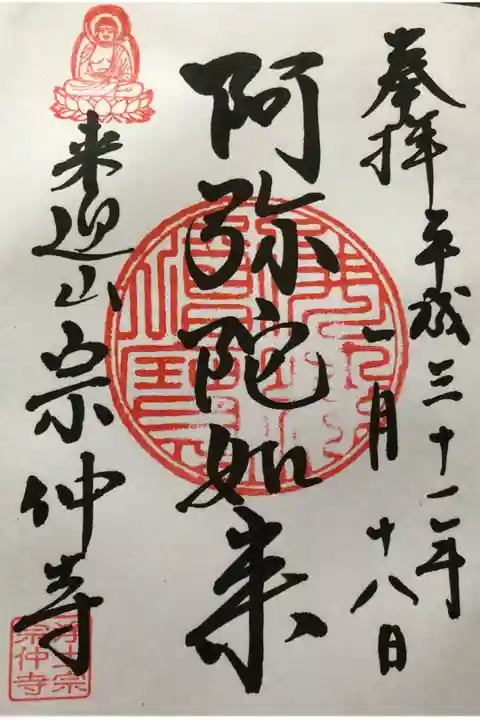 奉拝 平成三十一年
一月十八日
阿弥陀如来
来迎山宗仲寺
浄土宗
宗仲寺